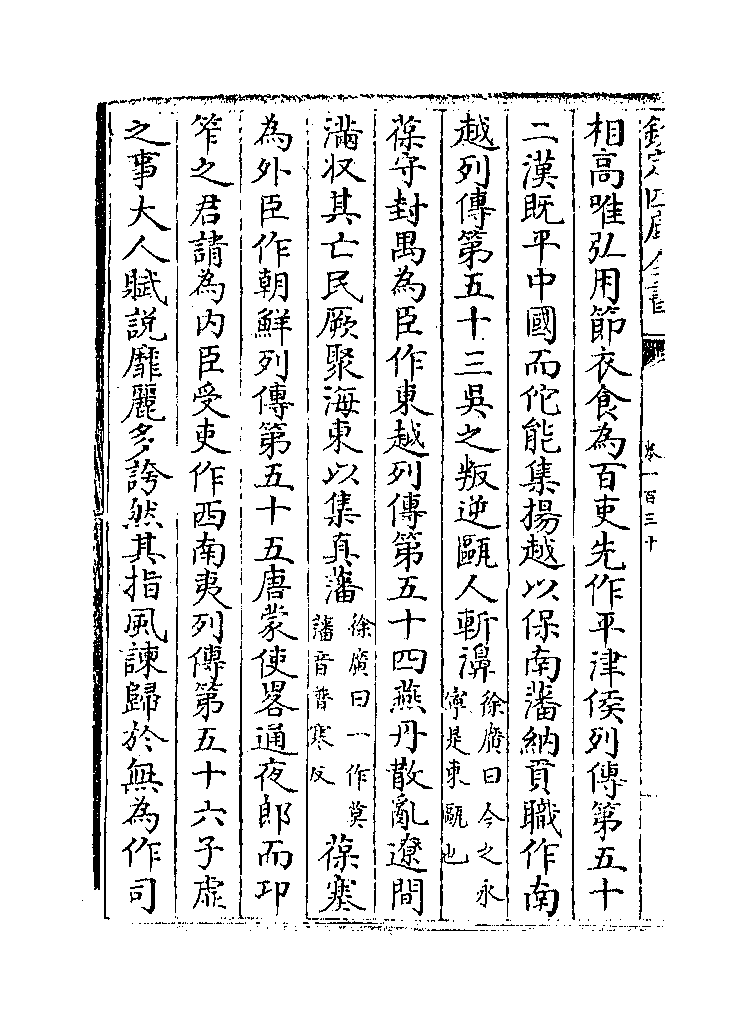 欽定四庫全書
卷一百三十
相高唯弘用節衣食為百吏先作平津侯列傳第五十
二漢既平中國而佗能集揚越以保南藩納貢職作南
越列傳第五十三吳之叛逆甌人斬濞徐廣曰今之永寧是東甌也
葆守封禺為臣作東越列傳第五十四燕丹散亂遼間
滿収其亡民厥聚海東以集真藩徐廣曰一作莫藩音普寒反葆塞
為外臣作朝鮮列傳第五十五唐蒙使畧通夜郎而卭
笮之君請為内臣受吏作西南夷列傳第五十六子虛
之事大人賦說靡麗多誇然其指風諫歸於無為作司